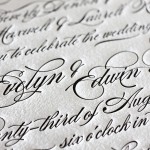 Maxwell & Laurell
to celebrate the wedding
Evelyn & Edwin
nty-third of Aug
six o'clock in